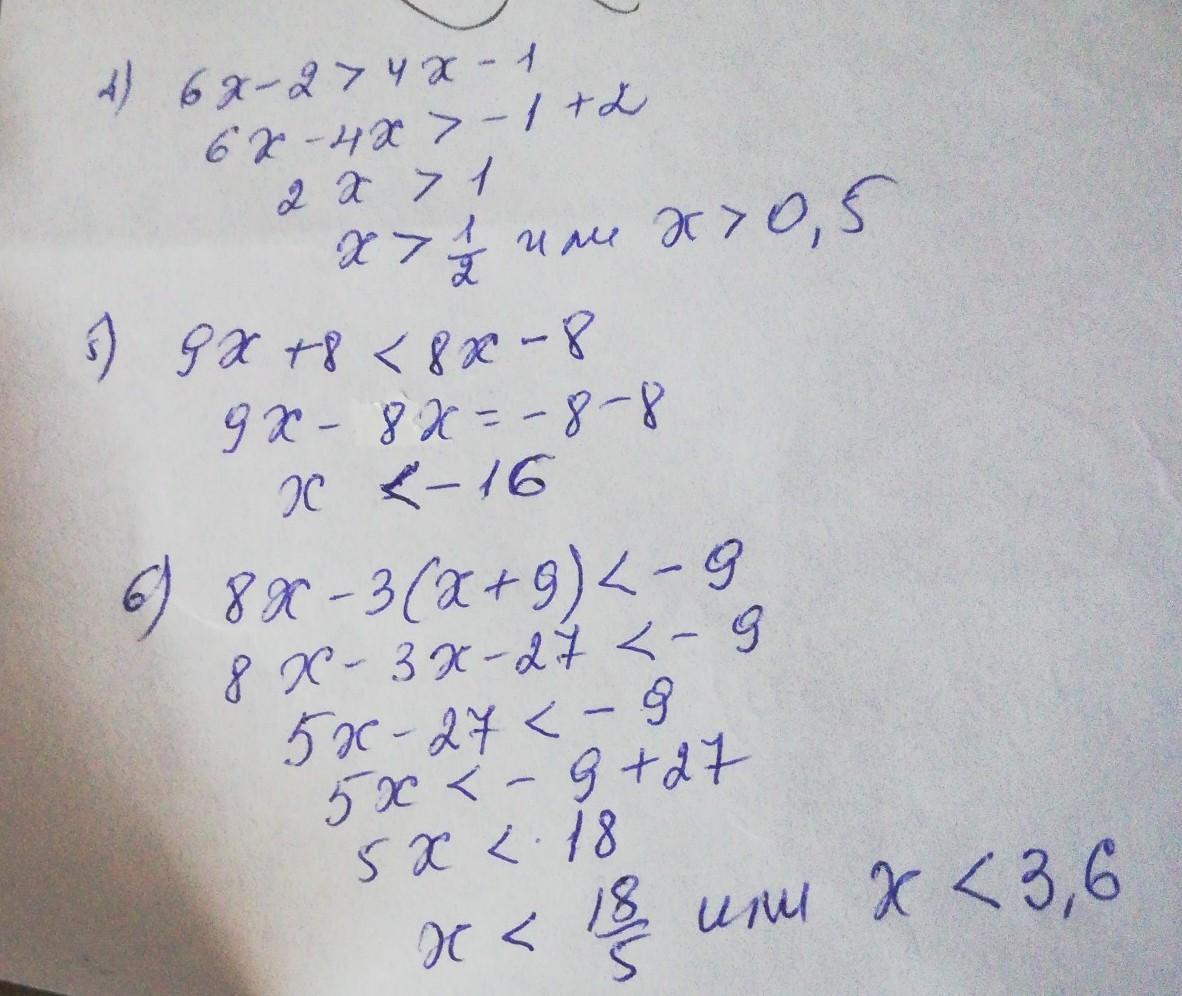 4) 6x-2>4x-1
6x-4x>-1+2
2x>1
x>1/2 или x>0,5
5) 9x+8<8x-8
9x-8x=-8-8
x<-16
6) 8x-3(x+9)<-9
8x-3x-27<-9
5x-27<-9
5x<-9+27
5x<18
x<18/5 или x<3,6